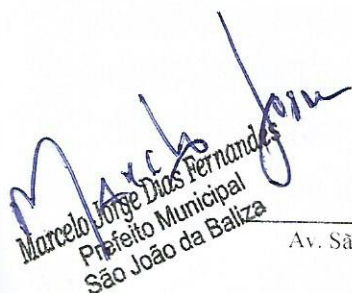 Marcelo Jorge
Marcelo Jorge Dias Fernandes
Prefeito Municipal
São João da Baliza
Av. Sã